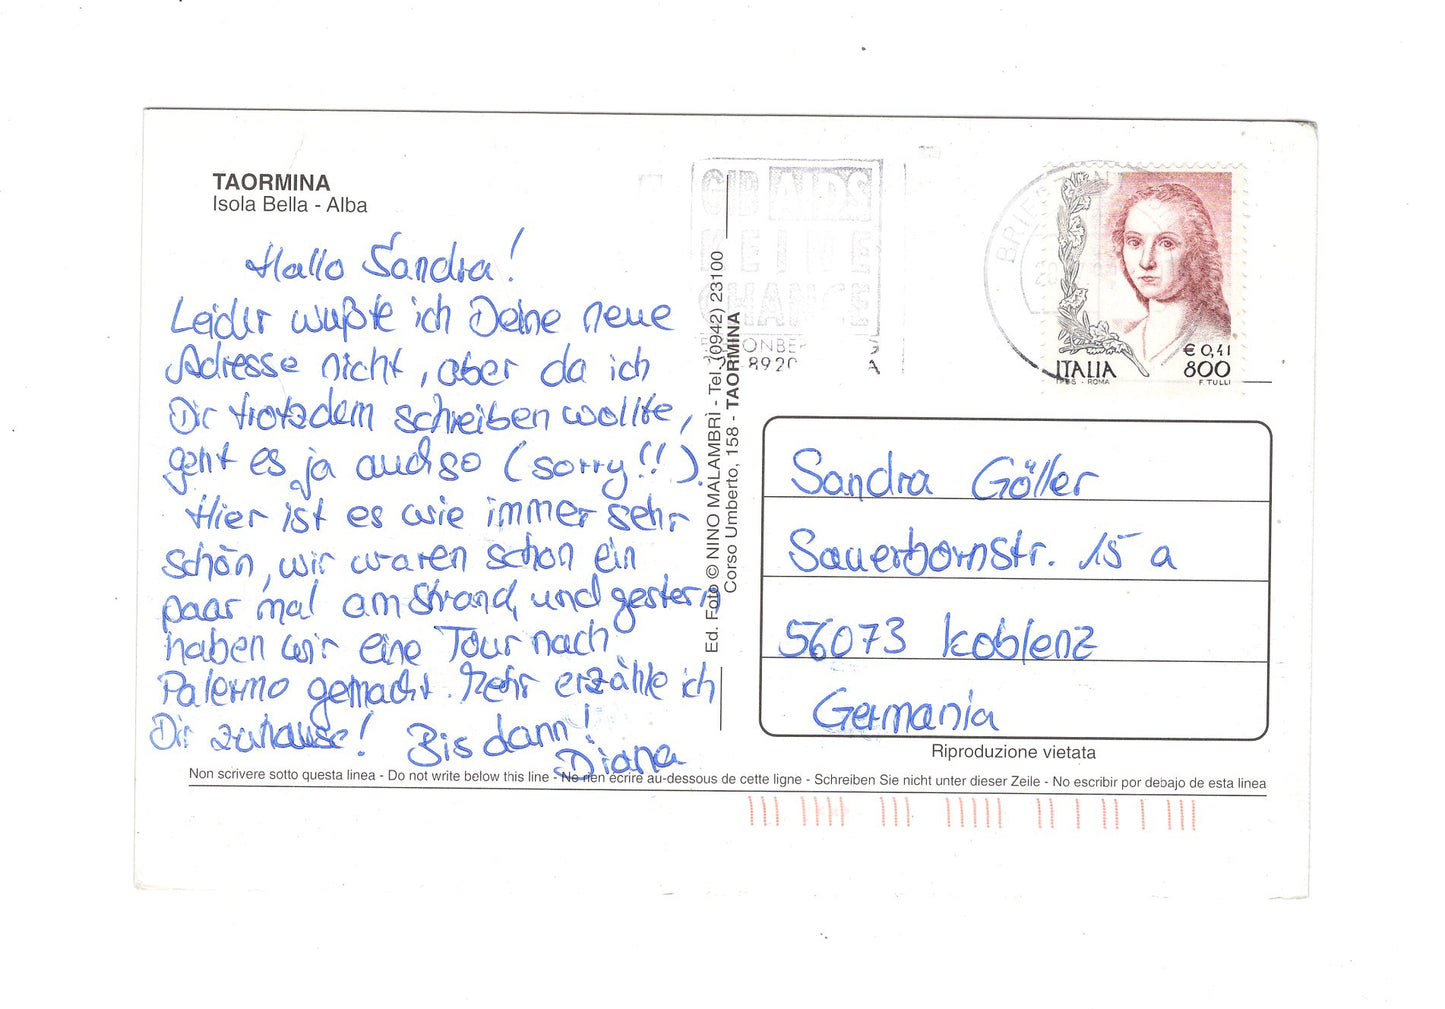 TAORMINA
Isola Bella - Alba
Hallo Sandra!
Leider wußte ich Deine neue
Adresse nicht, aber da ich
Dir trotzdem schreiben wollte,
geht es ja auch so (sorry!!).
Hier ist es wie immer sehr
schön, wir waren schon ein
paar mal am Strand, und gestern
haben wir eine Tour nach
Palermo gemacht. Mehr erzähle ich
Dir zuhause! Bis dann!
Diana
Ed. Foto © NINO MALAMBRÌ - Tel. (0942) 23100
Corso Umberto, 158 - TAORMINA
GIB AIDS
KEINE
CHANCE
BRIEF
€ 0,41
ITALIA 800
I.P.S. - ROMA F. TULLI
Sandra Göller
Sauerbornstr. 15 a
56073 Koblenz
Germania
Riproduzione vietata
Non scrivere sotto questa linea - Do not write below this line - Ne rien écrire au-dessous de cette ligne - Schreiben Sie nicht unter dieser Zeile - No escribir por debajo de esta linea